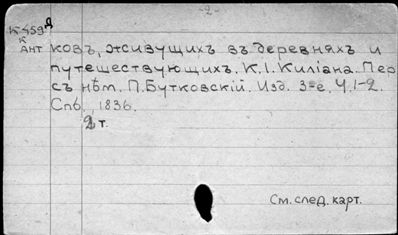 -2-
К-459д
К Ант
ковъ, живущихъ въ деревняхъ и
путешествующихъ. К.I. Килiана. Пер
съ нѣм. П. Бутковскiй. Изд. 3-е. Ч. 1-2.
Спб. 1836.
2 т.
См. след. карт.